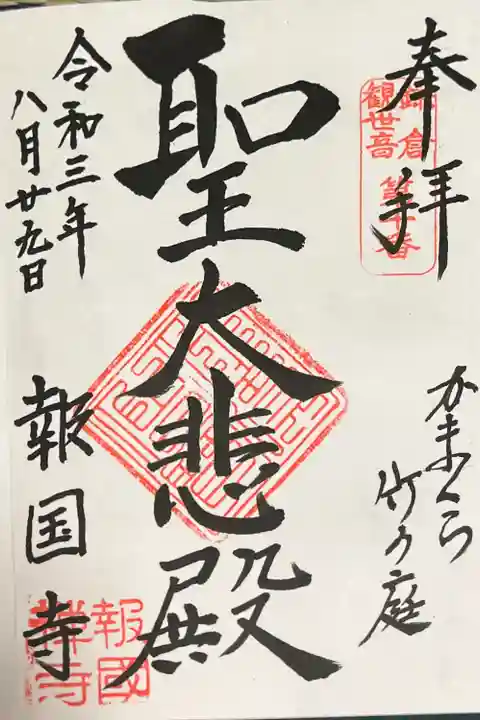 奉拝
鎌倉
観世音
第十番
かまくら
竹の庭
聖大悲殿
令和三年
八月廿九日
報国寺
報國
禅寺